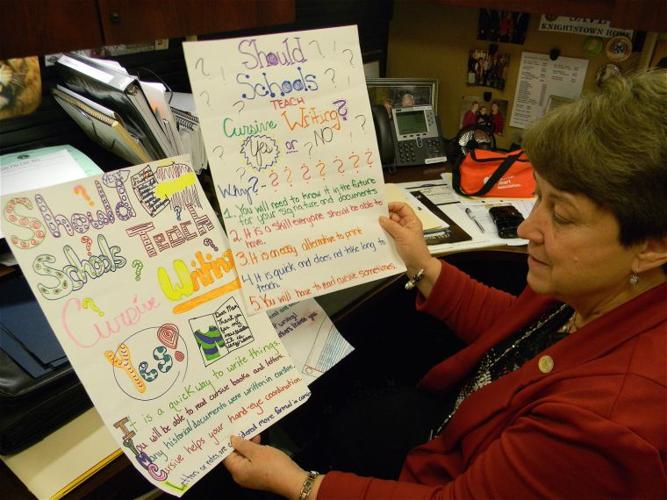 SAVE
KNIGHTSTOWN HOME
Should
Schools
TEACH
Cursive Writing?
Yes or NO?
Why?
1. You will need to know it in the future
for your signature and documents
2. It is a skill everyone should be able to
have.
3. It is an easy alternative to print
4. It is quick and does not take long to
teach.
5. You will have to read cursive sometimes.
Should
Schools
Teach
Cursive
Writing
Yes!
Dear Mom,
Thank you
It is a quick way to write things.
You will be able to read cursive books and letters
Many historical documents were written in cursive
Cursive helps your hand-eye coordination
Letters or notes are considered more formal in